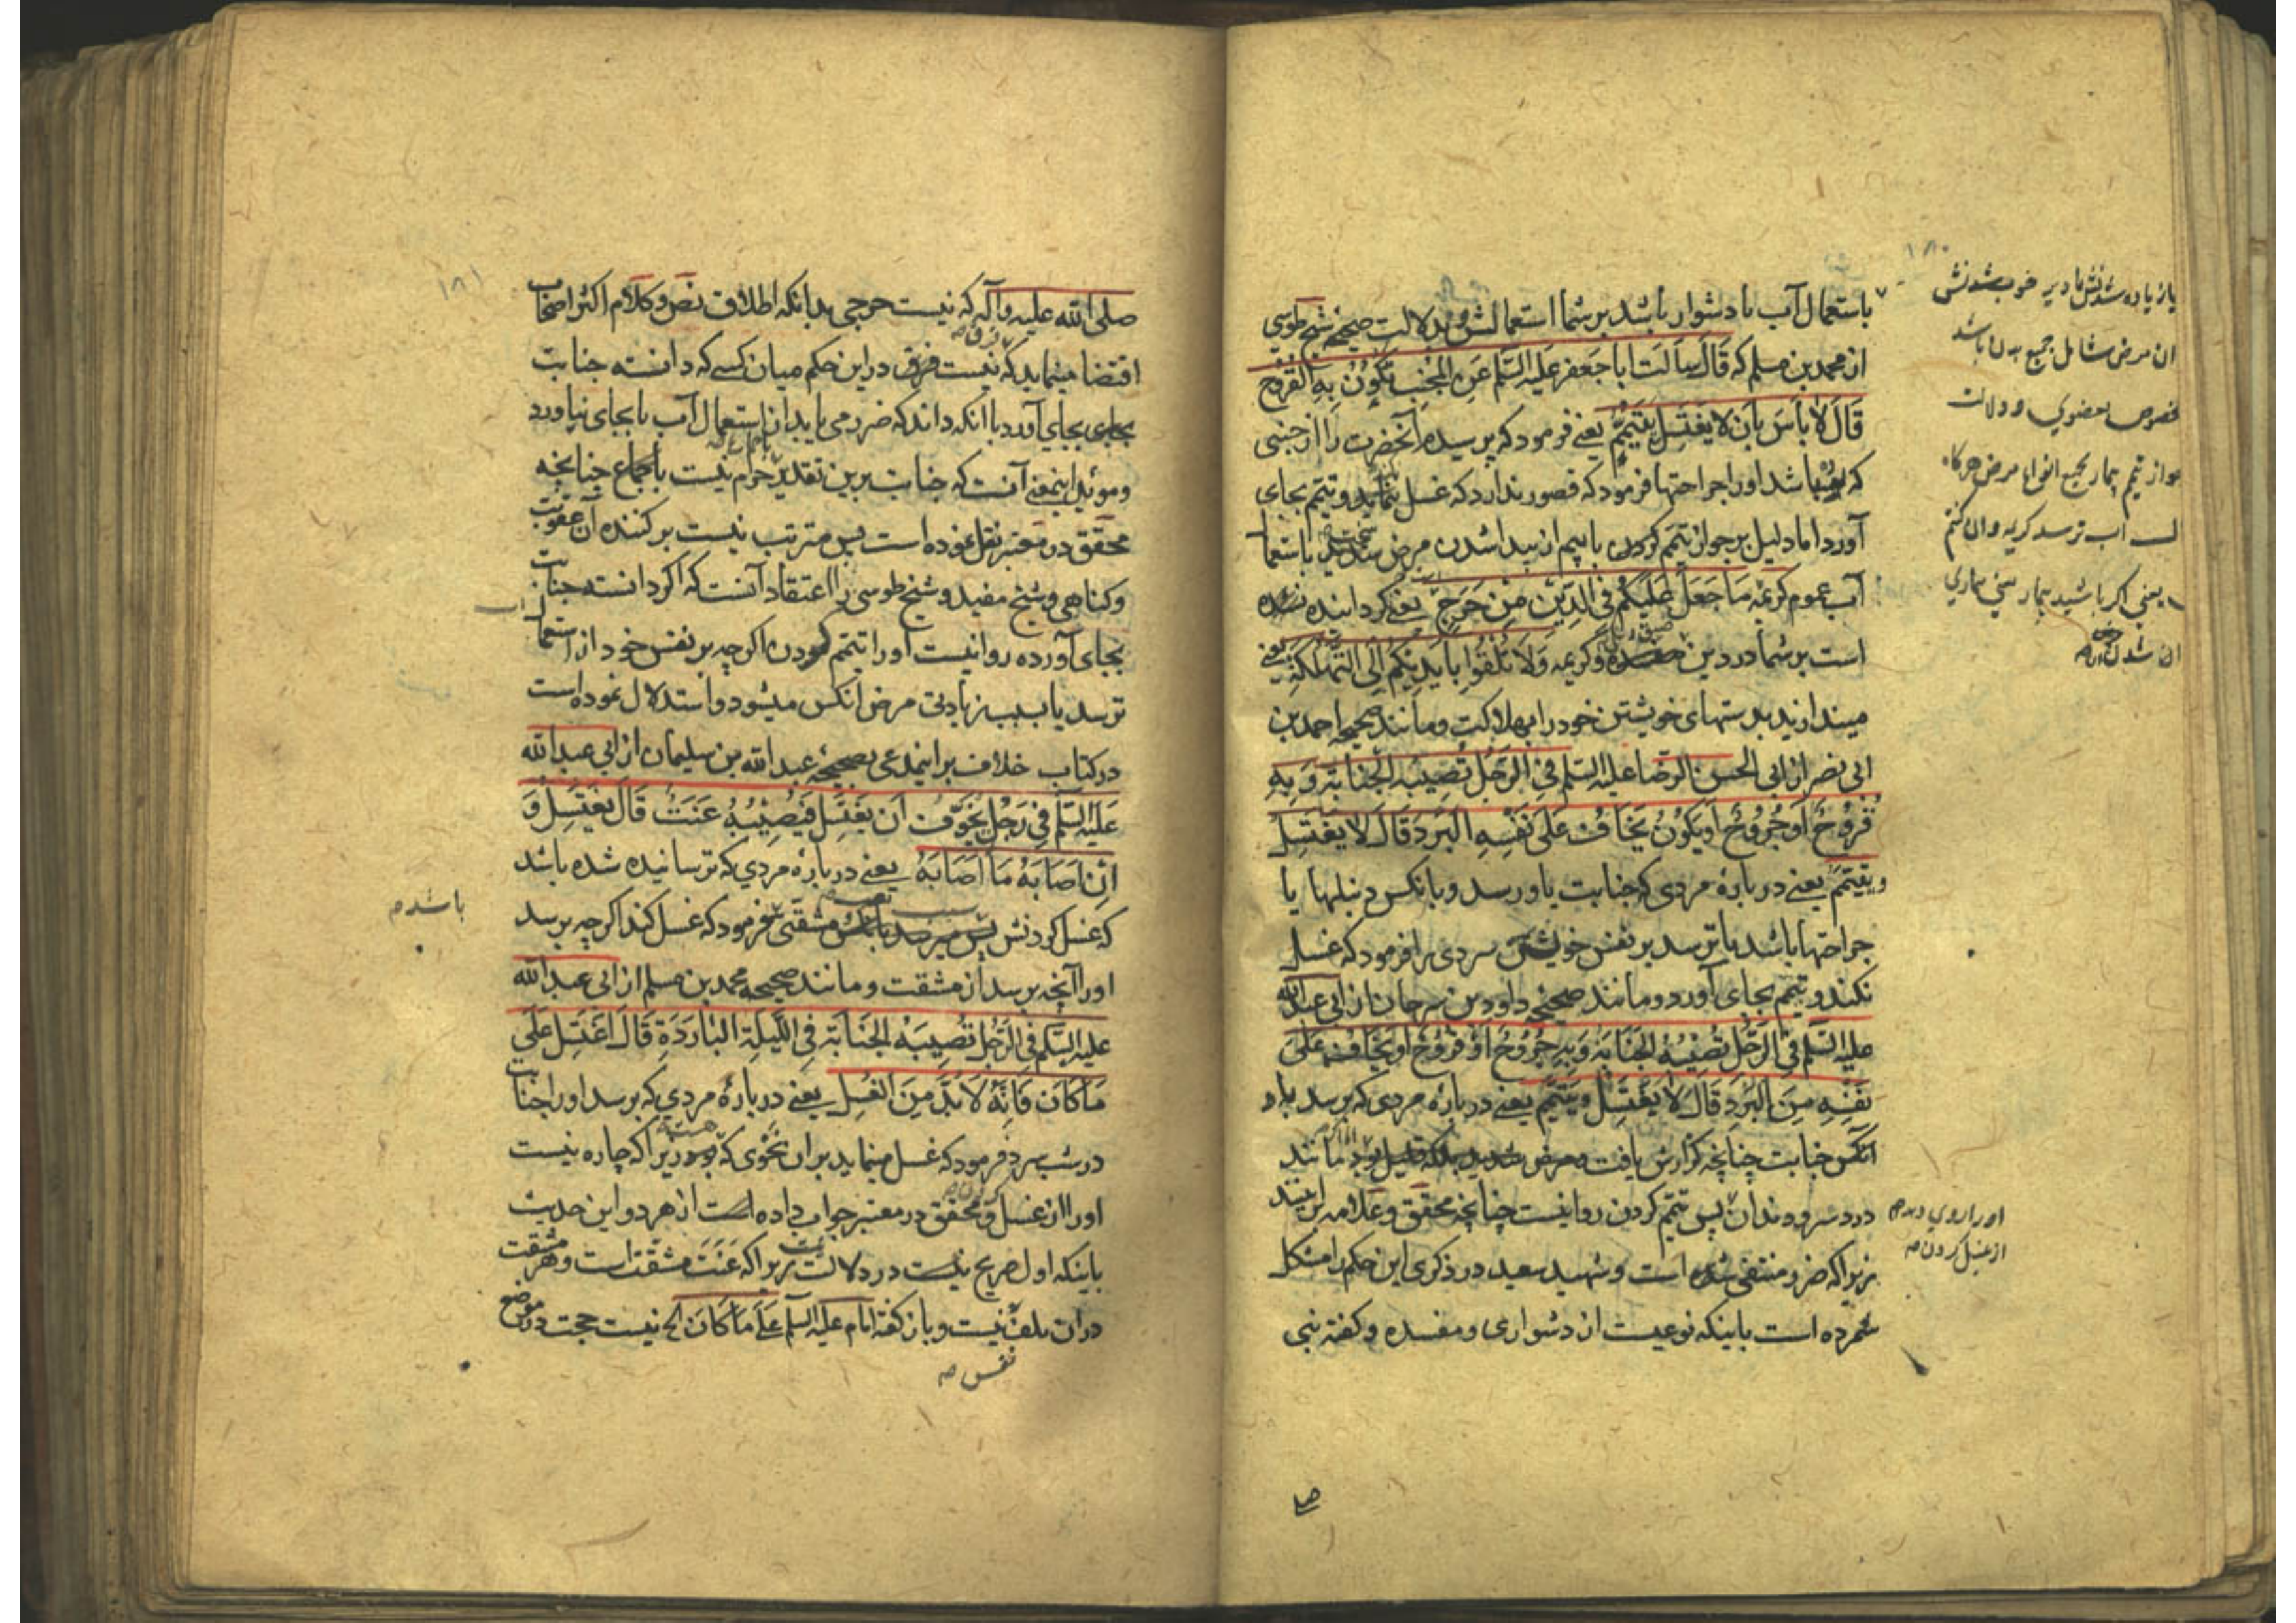 ۱۸۰
باستعمال آب یا دشوار باشد بر شما استعمالش و بدلالت صحیحه شیخ طوسی
از محمد بن مسلم که قَالَ سَاَلتُ ابا جَعفَر عَلَیهِ السَّلم عَنِ الْجُنُبِ تَکُونُ بِهِ القُروح
قَالَ لَا بَأسَ بِأن لا یَغتَسِل یَتَیَمَّمُ یعنی فرمود که پرسیدم آنحضرت را از جنبی
که باشد او را جراحتها فرمود که قصور ندارد که غسل ننماید و تیمم بجای
آورد اما دلیل بر جواز تیمم کردن با بیم از پیدا شدن مرض شدید باستعمال
آب عموم کریمه مَا جَعَلَ عَلَیْکُم فِی الدِّینِ مِنْ حَرَجٍ یعنی گردانیده نشده
است بر شما در دین و کریمه وَلَا تُلْقُوا بِأیدِیکُم اِلَی التَّهلُکَةِ یعنی
میندازید بدستهای خویشتن خود را بهلاکت و مانند صحیحه احمد بن
ابی نصر از ابی الحسن الرضا علیه السّلم فِی الرَّجُلِ تُصِیبُهُ الجَنَابَةُ وَ بِهِ
قُرُوحٌ اَو جُرُوحٌ اَو یَکُونُ یَخَافُ عَلَی نَفسِهِ البَردَ قَالَ لَا یَغتَسِلُ
و یَتَیَمَّم یعنی در بارهٔ مردی که جنابت باو رسد و بانکس دنبلها یا
جراحتها باشد یا ترسد بر نفس خویش سردی را فرمود که غسل
نکند و تیمم بجای آورد و مانند صحیحه داود بن سرحان از ابی عبدالله
علیه السّلم فِی الرَّجُلِ تُصِیبُهُ الجَنَابَةُ وَ بِهِ جُرُوحٌ اَوْ قُرُوحٌ اَو یَخَافُ عَلَی
نَفسِهِ مِنَ البَرَدِ قَالَ لَا یَغتَسِل وَ یَتَیَمَّم یعنی در بارهٔ مردی که برسد باو
آنکس جنابت چنانچه گزارش یافت و مرض مانند
درد سر و دندان پس تیمم کردن روا نیست چنانچه محقق و علامه برانند
زیرا که ضرر منتفی شده است و شهید سعید در ذکری این حکم را مشکل
شمرده است باینکه نوعیست از دشواری و مفسده و گفته نبی
یا زیاده شدنش یا دیر خوب شدنش
ان مرض شامل جمیع بدن باشد
عضوی و دلالت
جواز تیمم بیمار بجمیع انواع مرض هرگاه
آب ترسد کریمه و ان کنتم
یعنی اگر باشید بیمار یعنی بیماری
او را روی دهد
از غسل کردن صه
۱۸۱
صلی الله علیه و آله که نیست حرجی بدانکه اطلاق نص و کلام اکثر اصحاب
اقتضا مینماید که نیست فرق در این حکم میان کسی که دانسته جنابت
بجای آورد با آنکه داند که ضرر می یابد از استعمال آب یا بجای نیاورد
و مؤید اینمعنی آنست که جنابت برین تقدیر حرام نیست باجماع چنانچه
محقق در معتبر نقل نموده است پس مترتب نیست بر کننده آن عقوبت
و گناهی و شیخ مفید و شیخ طوسی را اعتقاد آنست که اگر دانسته جنابت
بجای آورده روا نیست او را تیمم کردن اگرچه بر نفس خود از استعمال
ترسد یا سبب زیادتی مرض آنکس میشود و استدلال نموده است
در کتاب خلاف بر اینمدعی بصحیحه عبد الله بن سلیمان از ابی عبدالله
عَلَیهِ السَّلَم فِی رَجُلٍ یَخَوَّفُ اَن یَغتَسِلَ فَیُصِیبُهُ عَنَتٌ قَالَ یَغتَسِلُ وَ
اِن اَصَابَهُ مَا اَصَابَهُ یعنی در بارهٔ مردی که ترسانیده شده باشد
که غسل کردنش مشقتی فرمود که غسل کند اگرچه برسد
او را آنچه برسد از مشقت و مانند صحیحه محمد بن مسلم از ابی عبدالله
علیه السّلم فی الرَّجُل تُصِیبُهُ الجَنَابَة فِی اللَّیلَةِ البَارَدَةِ قَالَ اغتَسِل عَلَی
مَا کَانَ فَاِنَّهُ لَا بُدَّ مِنَ الغُسلِ یعنی در بارهٔ مردی که برسد او را جنابت
در شب سرد فرمود که غسل مینماید بران نحوی که زیرا که چاره نیست
او را از غسل و محقق در معتبر جواب داده است از هر دو این حدیث
باینکه اول صریح نیست در دلالت زیرا که عَنَت مشقت است و هر مشقت
دران تلف نیست و باز گفته امام علیه السّلم عَلَی مَا کَانَ الخ نیست حجت در موضع
باشد صه
نفس صه